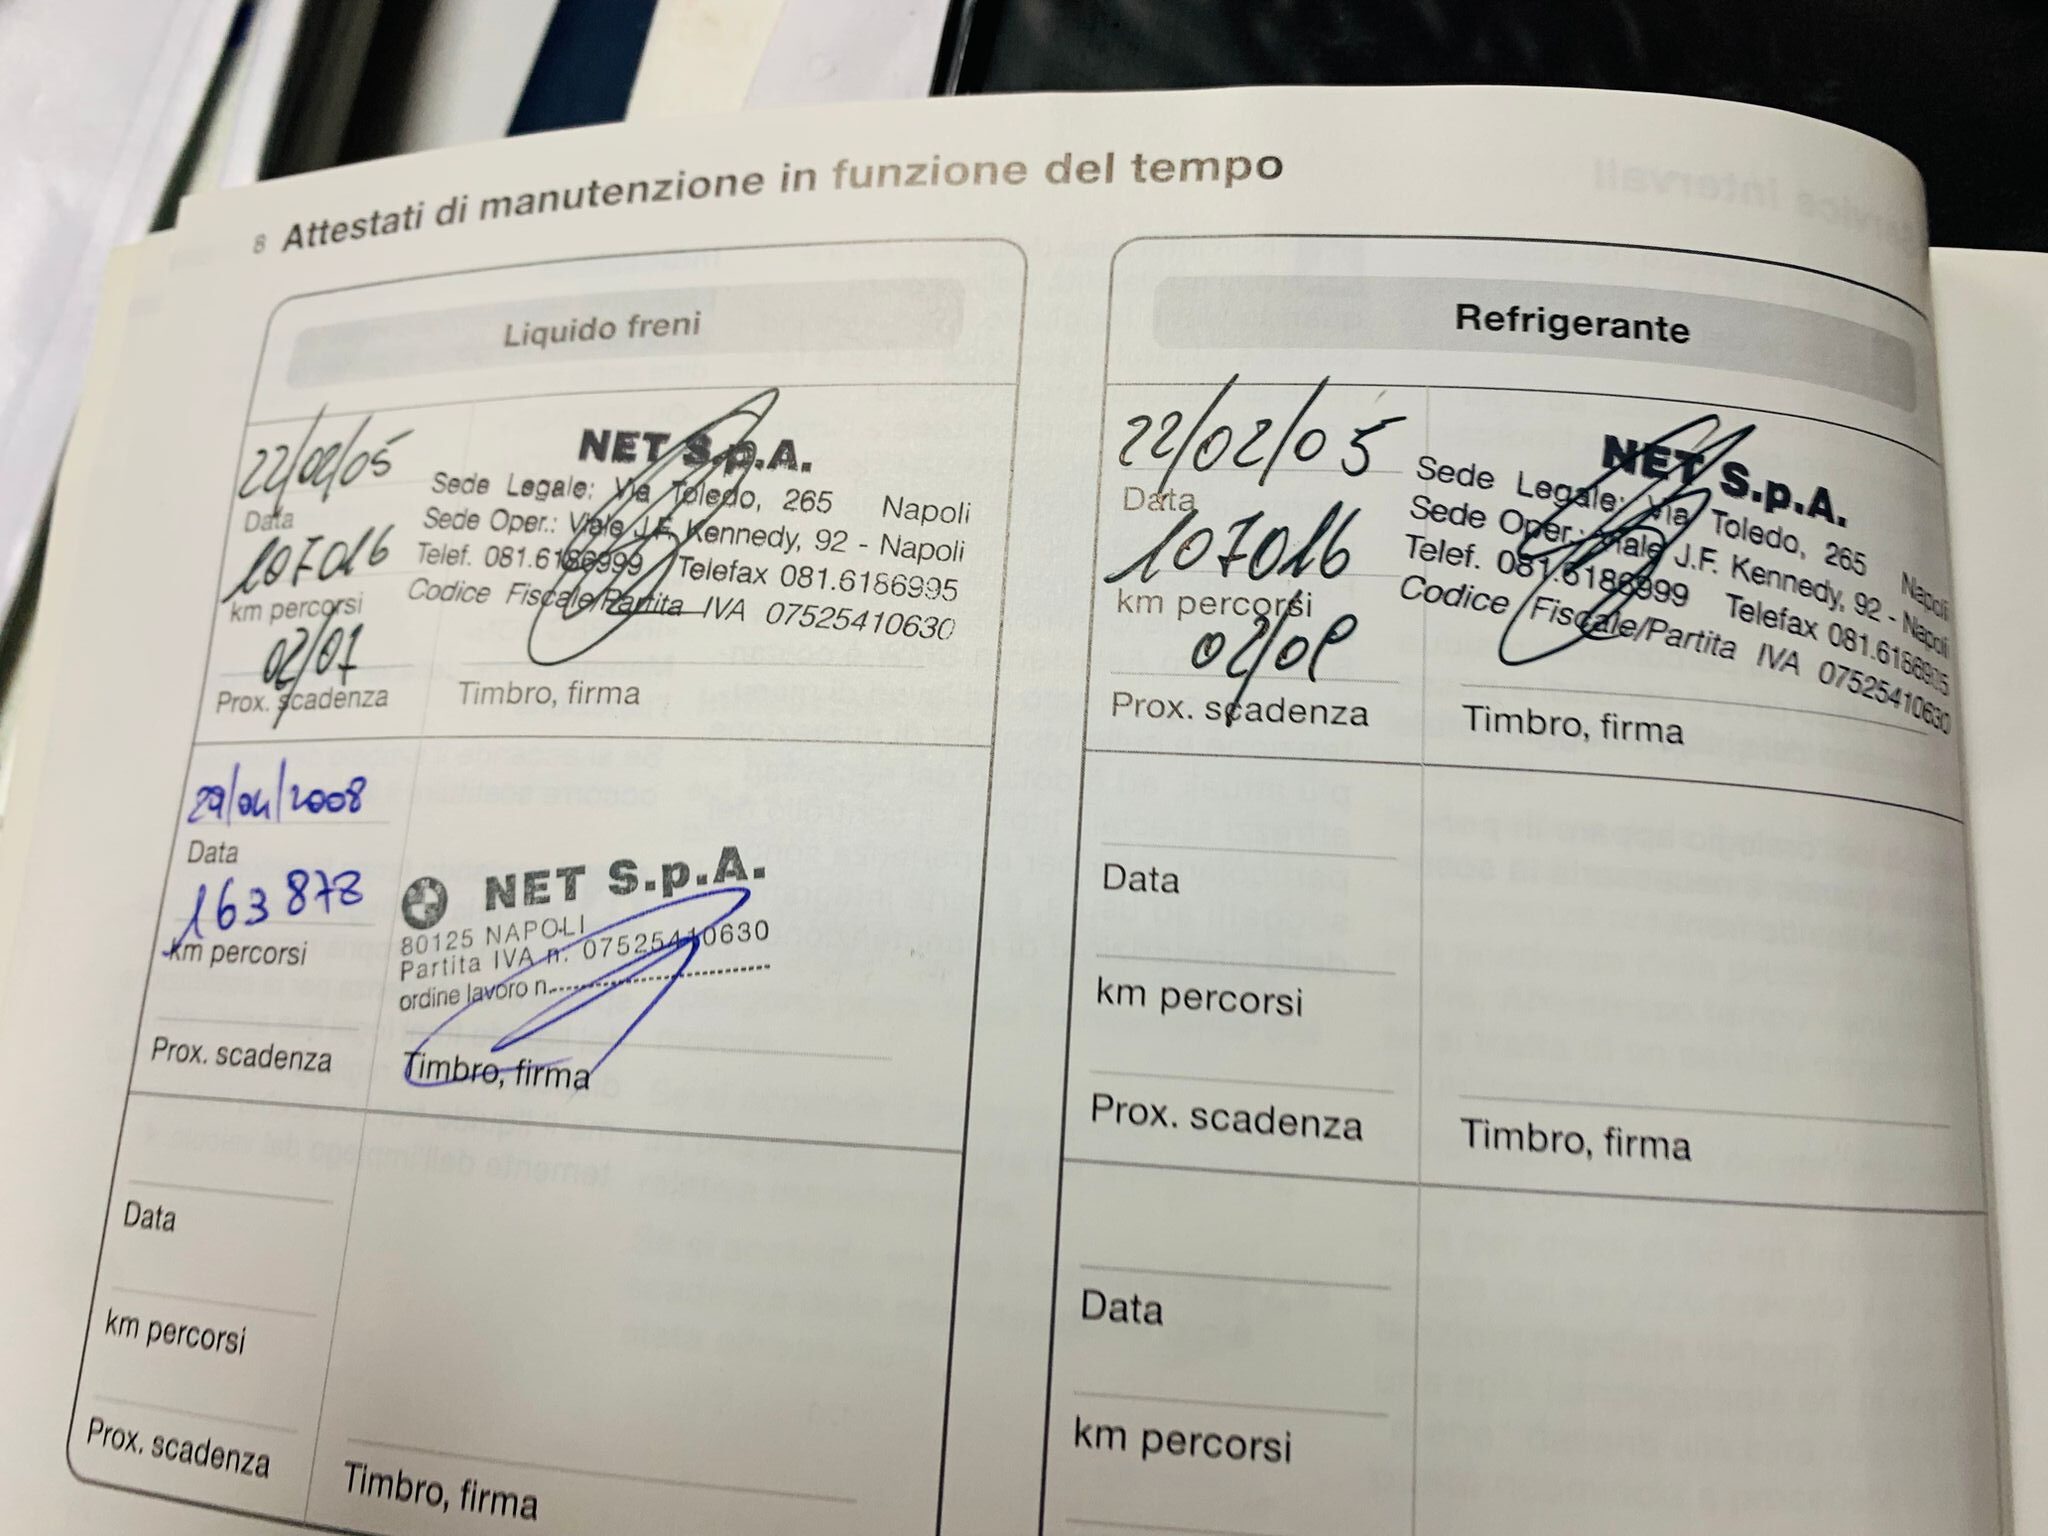 8 Attestati di manutenzione in funzione del tempo
Liquido freni
22/02/05
Data
107016
km percorsi
02/07
Prox. scadenza
NET S.p.A.
Sede Legale: Via Toledo, 265 Napoli
Sede Oper.: Viale J.F. Kennedy, 92 - Napoli
Telef. 081.6186999 Telefax 081.6186995
Codice Fiscale/Partita IVA 07525410630
Timbro, firma
29/04/2008
Data
163878
km percorsi
Prox. scadenza
NET S.p.A.
80125 NAPOLI
Partita IVA n. 07525410630
ordine lavoro n.
Timbro, firma
Data
km percorsi
Prox. scadenza
Timbro, firma
Refrigerante
22/02/05
Data
107016
km percorsi
02/09
Prox. scadenza
NET S.p.A.
Sede Legale: Via Toledo, 265 Napoli
Sede Oper.: Viale J.F. Kennedy, 92 - Napoli
Telef. 081.6186999 Telefax 081.6186995
Codice Fiscale/Partita IVA 07525410630
Timbro, firma
Data
km percorsi
Prox. scadenza
Timbro, firma
Data
km percorsi